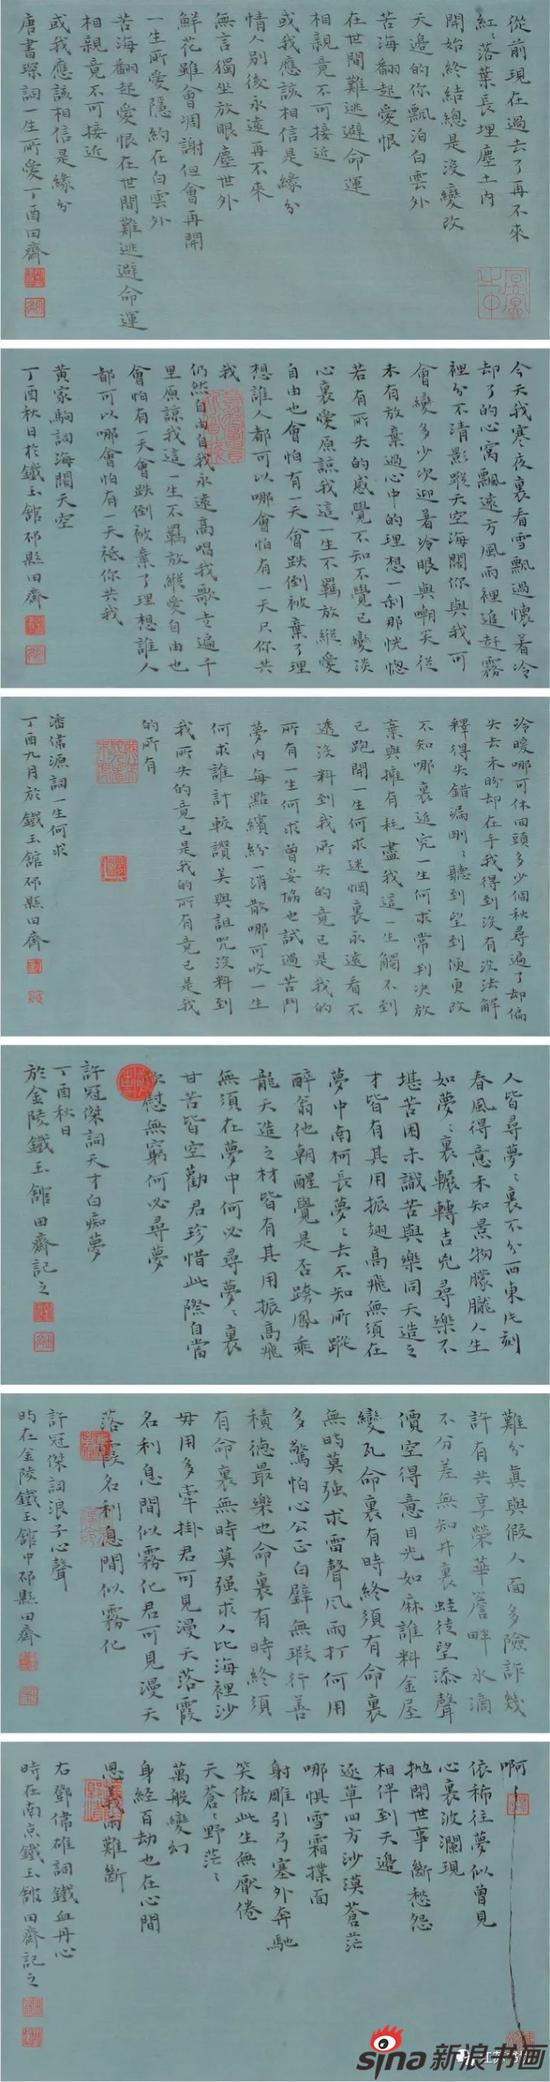 從前現在過去了再不來
紅紅落葉長埋塵土內
開始終結總是沒變改
天邊的你飄泊白雲外
苦海翻起愛恨
在世間難逃避命運
相親竟不可接近
或我應該相信是緣份
情人別後永遠再不來
無言獨坐放眼塵世外
鮮花雖會凋謝但會再開
一生所愛隱約在白雲外
苦海翻起愛恨在世間難逃避命運
相親竟不可接近
或我應該相信是緣分
唐書琛詞一生所愛丁酉田齋
今天我寒夜裏看雪飄過懷着冷
却了的心窩飄遠方風雨裡追趕霧
裡分不清影蹤天空海闊你與我可
會變多少次迎着冷眼與嘲笑從
未有放棄過心中的理想一刹那恍惚
若有所失的感覺不知不覺已變淡
心裏愛原諒我這一生不羈放縱愛
自由也會怕有一天會跌倒被棄了理
想誰人都可以哪會怕有一天只你共
我
仍然自由自我永遠高唱我歌走遍千
里原諒我這一生不羈放縱愛自由也
會怕有一天會跌倒被棄了理想誰人
都可以哪會怕有一天祗你共我
黄家駒詞海闊天空
丁酉秋日於鐵玉館邳縣田齋
冷暖哪可休回頭多少個秋尋遍了却偏
失去未盼却在手我得到沒有沒法解
釋得失錯漏剛剛聽到望到便更改
不知哪裏追究一生何求常判決放
棄與擁有耗盡我這一生觸不到
已跑開一生何求迷惘裏永遠看不
透沒料到我所失的竟已是我的
所有一生何求曾妥協也試過苦鬥
夢內每點繽紛一消散哪可收一生
何求誰計較讚美與詛咒沒料到
我所失的竟已是我的所有竟已是我
的所有
潘偉源詞一生何求
丁酉九月於鐵玉館邳縣田齋
人皆尋夢夢裏不分西東片刻
春風得意未知景物朦朧人生
如夢夢裏輾轉吉兇尋樂不
堪苦困未識苦與樂同天造之
才皆有其用振翅高飛無須在
夢中南柯長夢夢去不知所蹤
醉翁他朝醒覺是否跨鳳乘
龍天造之材皆有其用振高飛
無須在夢中何必尋夢夢裏
甘苦皆空勸君珍惜此際自當
欣慰無窮何必尋夢
許冠傑詞天才白痴夢
丁酉秋日
於金陵鐵玉館田齋記之
難分真與假人面多險詐幾
許有共享榮華簷畔水滴
不分差無知井裏蛙徒望添聲
價空得意目光如麻誰料金屋
變瓦命裏有時終須有命裏
無時莫強求雷聲風雨打何用
多驚怕心公正白璧無瑕行善
積德最樂也命裏有時終須
有命裏無時莫强求人比海裡沙
毋用多牽掛君可見漫天落霞
名利息間似霧化君可見漫天
落霞名利息間似霧化
許冠傑詞浪子心聲
時在金陵鐵玉館中邳縣田齋
啊
依稀往夢似曾見
心裏波瀾現
拋開世事斷愁怨
相伴到天邊
逐草四方沙漠蒼茫
哪懼雪霜撲面
射雕引弓塞外奔馳
笑傲此生無厭倦
天蒼蒼野茫茫
萬般變幻
身經百劫也在心間
恩義兩難斷
右鄧偉雄詞鐵血丹心
時在南京鐵玉館田齋記之
sina新浪书画